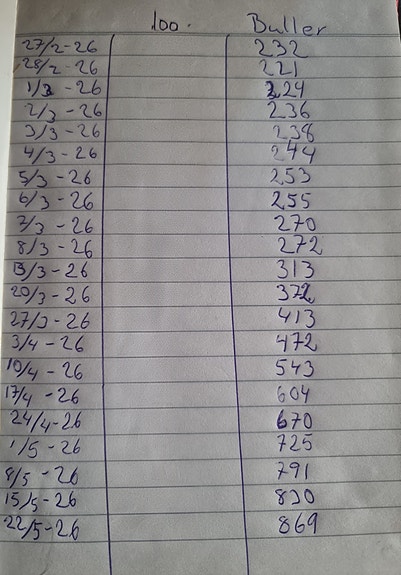 100. Buller
27/2-26 232
28/2-26 221
1/3-26 224
2/3-26 236
3/3-26 238
4/3-26 244
5/3-26 253
6/3-26 255
7/3-26 270
8/3-26 272
13/3-26 313
20/3-26 372
27/3-26 413
3/4-26 472
10/4-26 543
17/4-26 604
24/4-26 670
1/5-26 725
8/5-26 791
15/5-26 830
22/5-26 869